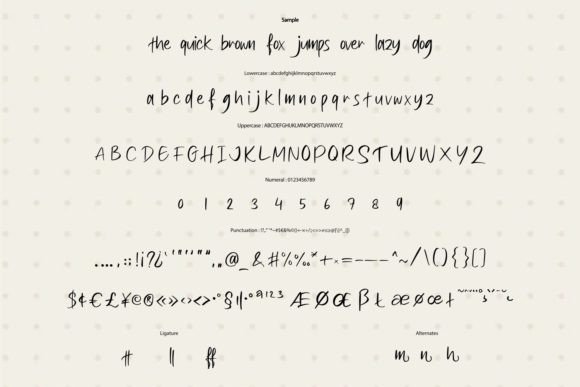 Sample
the quick brown fox jumps over lazy dog
Lowercase : abcdefghijklmnopqrstuvwxyz
a b c d e f g h i j k l m n o p q r s t u v w x y z
Uppercase : ABCDEFGHIJKLMNOPQRSTUVWXYZ
A B C D E F G H I J K L M N O P Q R S T U V W X Y Z
Numeral : 0123456789
0 1 2 3 4 5 6 7 8 9
Punctuation :
@ _ & # % ‰ * + × = — — – - ^ ~ / \ ( ) { } [ ]
$ ¢ € £ ¥ © ® « » ‹ › < > · ° § ¶ Æ Ø Œ β ł æ ø œ ł
Ligature
tt ll ff
Alternates
m n h